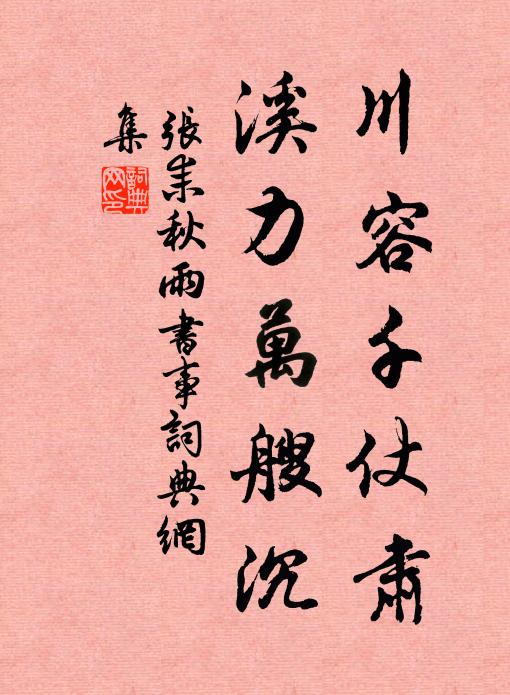 川容千仗肅
溪力萬艘沉
張耒秋雨書事詞典網
集
詞典網印